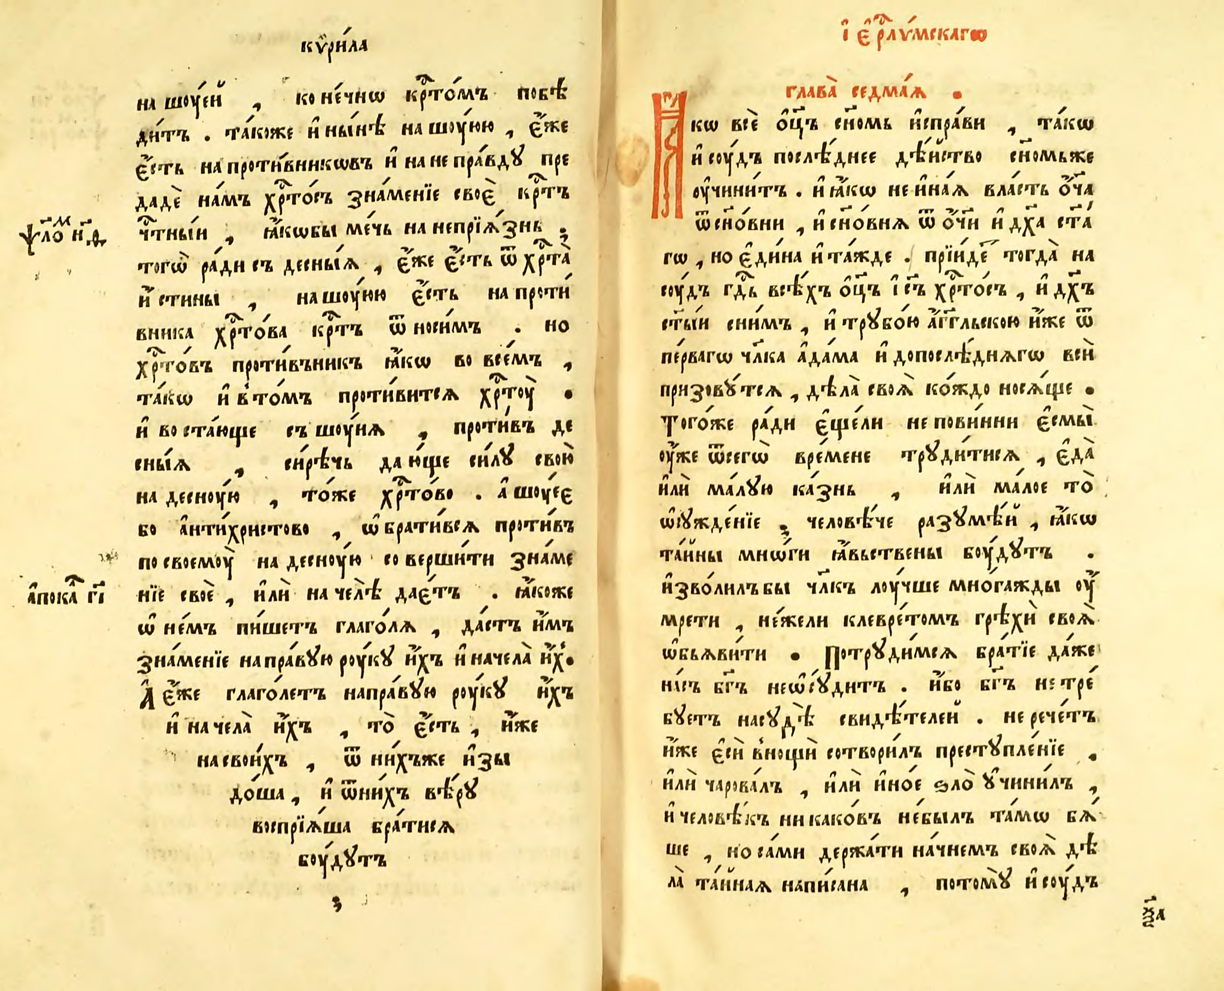 кѷри́ла
на шоу́ей , коне́чнѡ крⷭ҇то́мъ побѣ
ди́тъ . та́коже и҆ ны́нѣ на шоу́юю , є҆́же
є҆́сть на проти́вникѡвъ и҆ на непра́вдꙋ пре
дадѐ на́мъ хрⷭ҇то́съ зна́менїе своѐ крⷭ҇тъ
чⷭ҇тны́и , ꙗ҆́кѡбы ме́чь на непрїѧ́знь ,
тогѡ̀ ра́ди съ десны́ѧ , є҆́же є҆́сть ѿ хрⷭ҇та̀
и҆́стины , на шоу́юю є҆́сть на проти
вника хрⷭ҇то́ва крⷭ҇тъ ѿно́симъ . но
хрⷭ҇то́въ проти́въникъ ꙗ҆́кѡ во все́мъ ,
та́кѡ и҆ в то́мъ проти́витсѧ хрⷭ҇тоу̀ .
и҆ воста́юще съ шоу́иѧ , проти́въ де
сны́ѧ , си́рѣчь даю́ще си́лꙋ свою̀
на десноу́ю , то́же хрⷭ҇то́во . а҆ шоу́еє
бо а҆нти́христово , ѡ҆брати́всѧ проти́въ
по своемоу̀ на десноу́ю соверши́ти зна́ме
нїе своѐ , и҆лѝ на челѣ̀ дає́тъ . ꙗ҆́коже
ѡ҆ не́мъ пи́шетъ глаго́лѧ , да́стъ и҆̀мъ
зна́менїе на пра́вꙋю роу́кꙋ и҆́хъ и҆ на чела̀ и҆́хъ .
А҆ є҆́же глаго́летъ на пра́вꙋю роу́кꙋ и҆́хъ
и҆ на чела̀ и҆́хъ , то̀ є҆́сть , и҆́же
на свои́хъ , ѿ ни́хъже и҆зы
до́ша , и҆ ѿ ни́хъ вѣ́рꙋ
воспрїѧ́ша бра́тисѧ
боу́дꙋтъ
ѱало́м н҃ѳ
а҆пока́лⷭ҇ гі҃
з
і҆єрⷭ҇лꙋ́мскагѡ
глава̀ седма́ѧ .
Ꙗкѡ всѐ ѻ҆ц҃ъ сн҃омь и҆спра́ви , та́кѡ
и҆ соу́дъ послѣ́днее дѣ́йство сн҃омьже
оу҆чини́тъ . и҆ ꙗ҆́кѡ не и҆на́ѧ вла́сть ѻ҆́ч҃а
ѿ сн҃о́вни , и҆ сн҃о́внѧ ѿ ѻ҆́ч҃и и҆ дх҃а ст҃а́
гѡ , но є҆ди́на и҆ та́жде . прїи́детъ тогда̀ на
соу́дъ гдⷭ҇ь всѣ́хъ ѻ҆ц҃ъ і҆с҃ъ хрⷭ҇то́съ , и҆ дх҃ъ
ст҃ы́и с ни́мъ , и҆ трꙋбо́ю а҆́гг҃льскою и҆́же ѿ
пе́рвагѡ чл҃ка а҆да́ма и҆ до послѣ́днѧгѡ всѝ
призовꙋ́тсѧ , дѣла̀ своѧ̀ ко́ждо носѧ́ще .
Тогѡ́же ра́ди є҆ще́ли непови́нни є҆смы̀
оу҆́же ѿ сегѡ̀ вре́мене трꙋди́тисѧ , є҆да̀
и҆лѝ ма́лꙋю ка́знь , и҆лѝ ма́лое то̀
ѡ҆сꙋжде́нїе , человѣ́че разꙋмѣ́й , ꙗ҆́кѡ
та́йны мнѡ́ги ꙗ҆́вьствены боу́дꙋтъ .
и҆зво́лилъ бы чл҃къ лоу́чше многа́жды оу҆
мре́ти , не́жели клевре́томъ грѣхѝ своѧ̀
ѡ҆бъѧви́ти . Потрꙋ́димсѧ бра́тїе да́же
на́съ бг҃ъ не ѡ҆сꙋ́дитъ . и҆́бо бг҃ъ не тре́
бꙋетъ на сꙋдѣ̀ свидѣ́телей . не рече́тъ
и҆́же є҆сѝ в нощѝ сотвори́лъ престꙋпле́нїе ,
и҆лѝ чарова́лъ , и҆лѝ и҆но́е ѕло̀ ᲂу҆чини́лъ ,
и҆ человѣ́къ никако́въ не́былъ та́мѡ бѧ́
ше , но са́ми держа́ти на́чнемъ своѧ̀ дѣ
ла̀ та́йнаѧ напи́сана , потомꙋ̀ и҆ соу́дъ
ѯ҃а